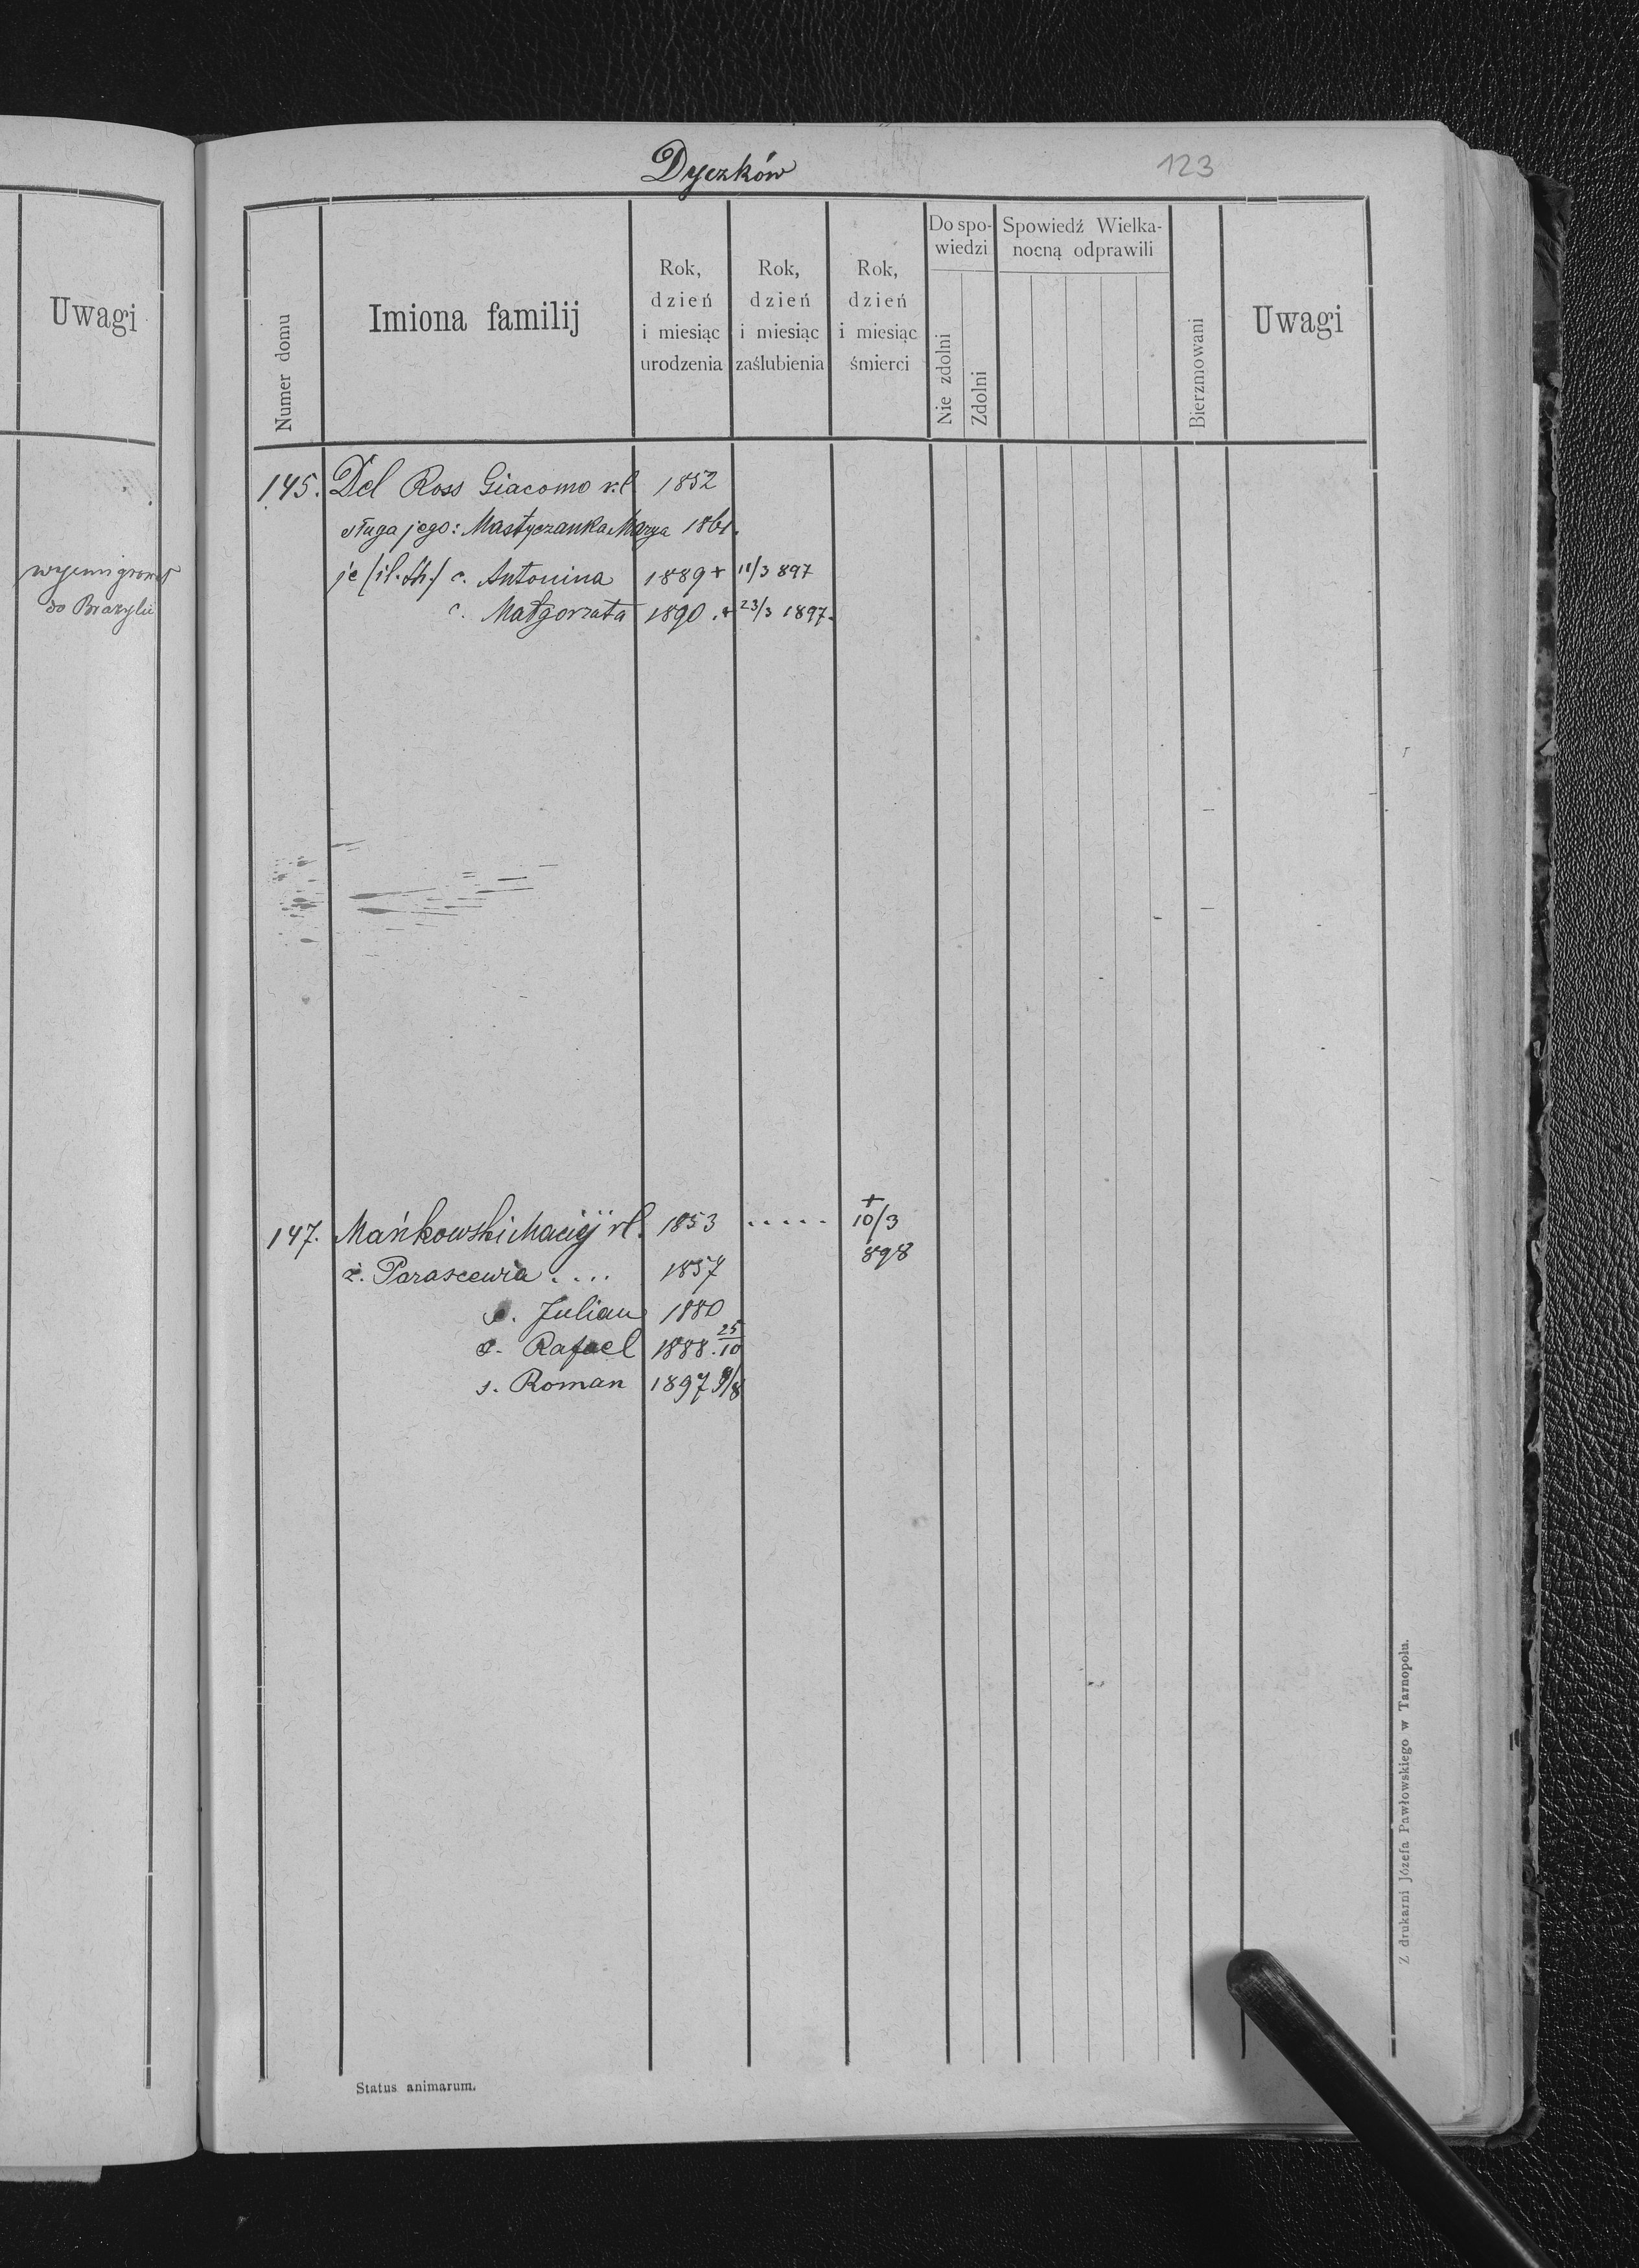 Uwagi
do Brazylii
Dyczków
123
Numer domu
Imiona familij
Rok,
dzień
i miesiąc
urodzenia
Rok,
dzień
i miesiąc
zaślubienia
Rok,
dzień
i miesiąc
śmierci
Do spo-
wiedzi
Nie zdolni
Zdolni
Spowiedź Wielka-
nocną odprawili
Bierzmowani
Uwagi
145. Del Ross Giacomo r.l 1852
sługa jego: Mastyczanka Marya 1861.
je /il. th./ c. Antonina 1889 + 11/3 897
c. Małgorzata 1890 . + 23/3 1897.
147. Mańkowski Maciej rl. 1853 ..... + 10/3
898
ż. Parascewia .... 1857
s. Julian 1880
s. Rafael 1888. 25/10
s. Roman 1897 9/8
Status animarum.
Z drukarni Józefa Pawłowskiego w Tarnopolu.